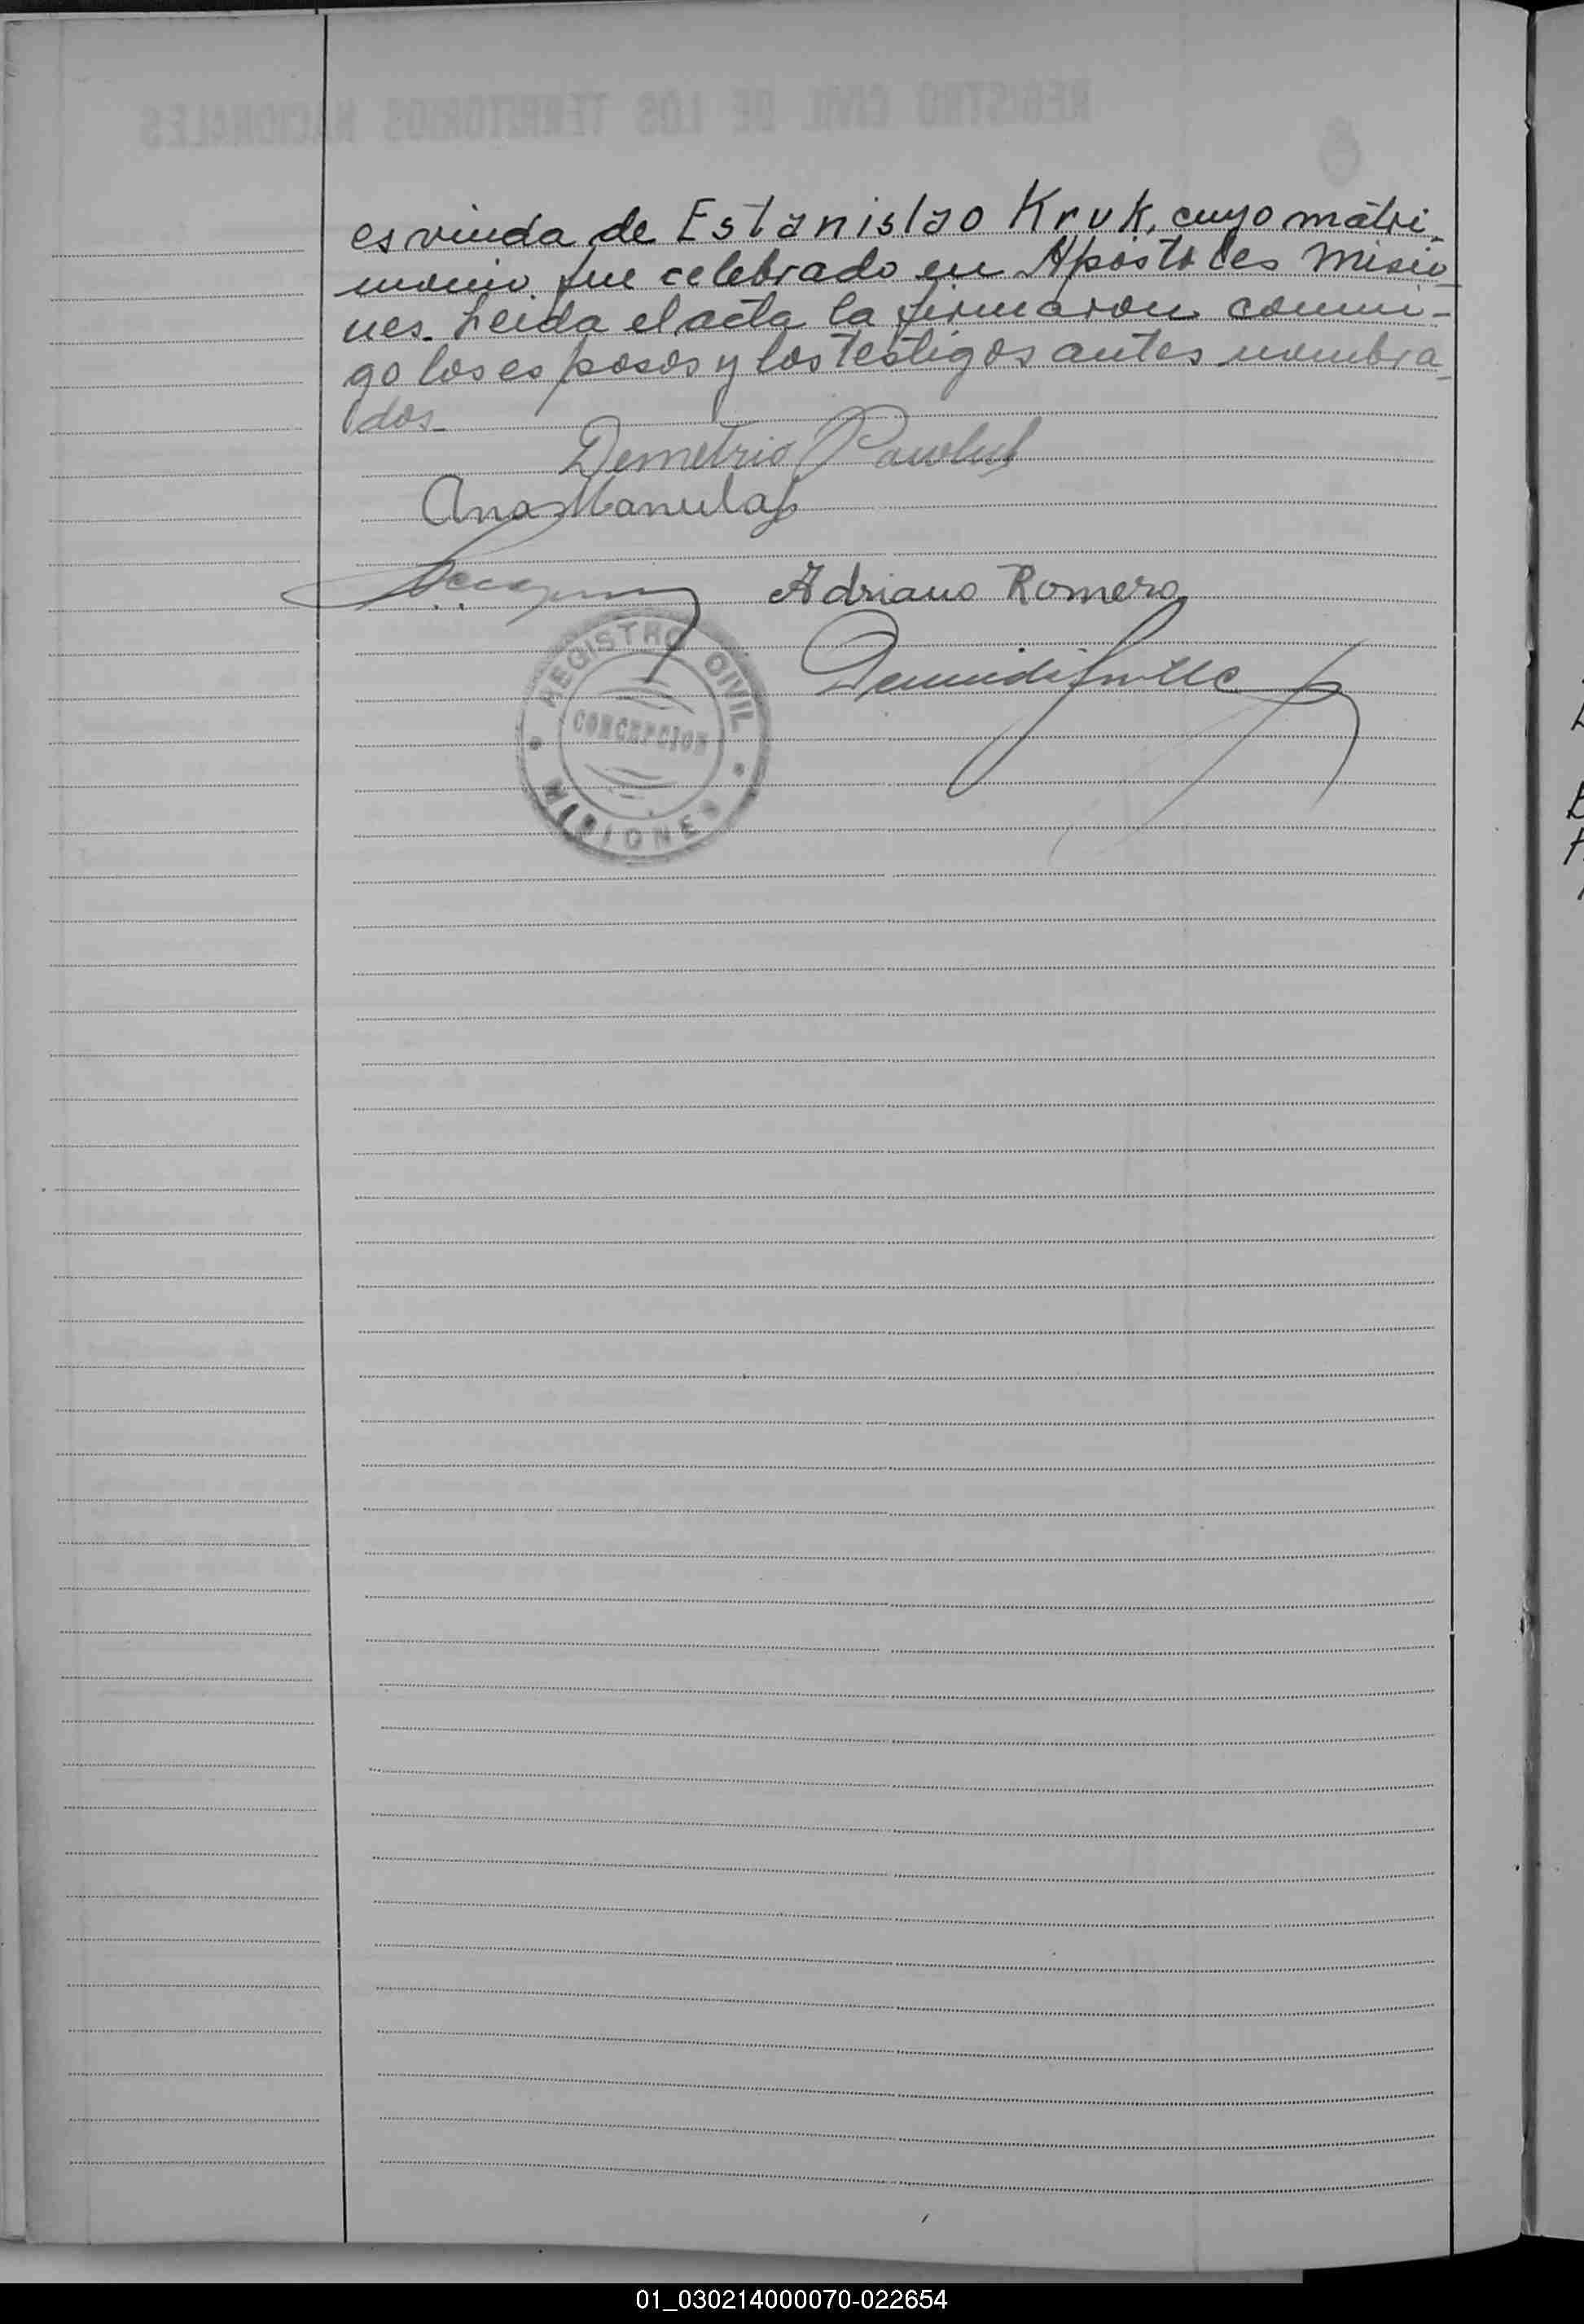 REGISTRO CIVIL DE LOS TERRITORIOS NACIONALES
es viuda de Estanislao Kruk, cuyo matri-
monio fue celebrado en Apóstoles Misio-
nes. Leida el acta la firmaron conmi-
go los esposos y los testigos antes nombra-
dos-
Demetrio
Ana Manulak
Adriano Romero
REGISTRO CIVIL
CONCEPCION
MISIONES
01_030214000070-022654